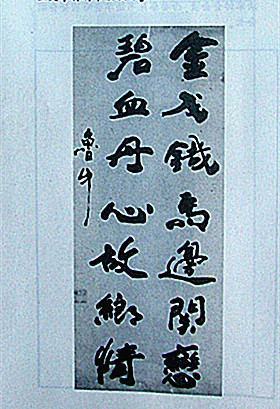 金戈鐵馬邊関戀
碧血丹心故鄉情
魯牛